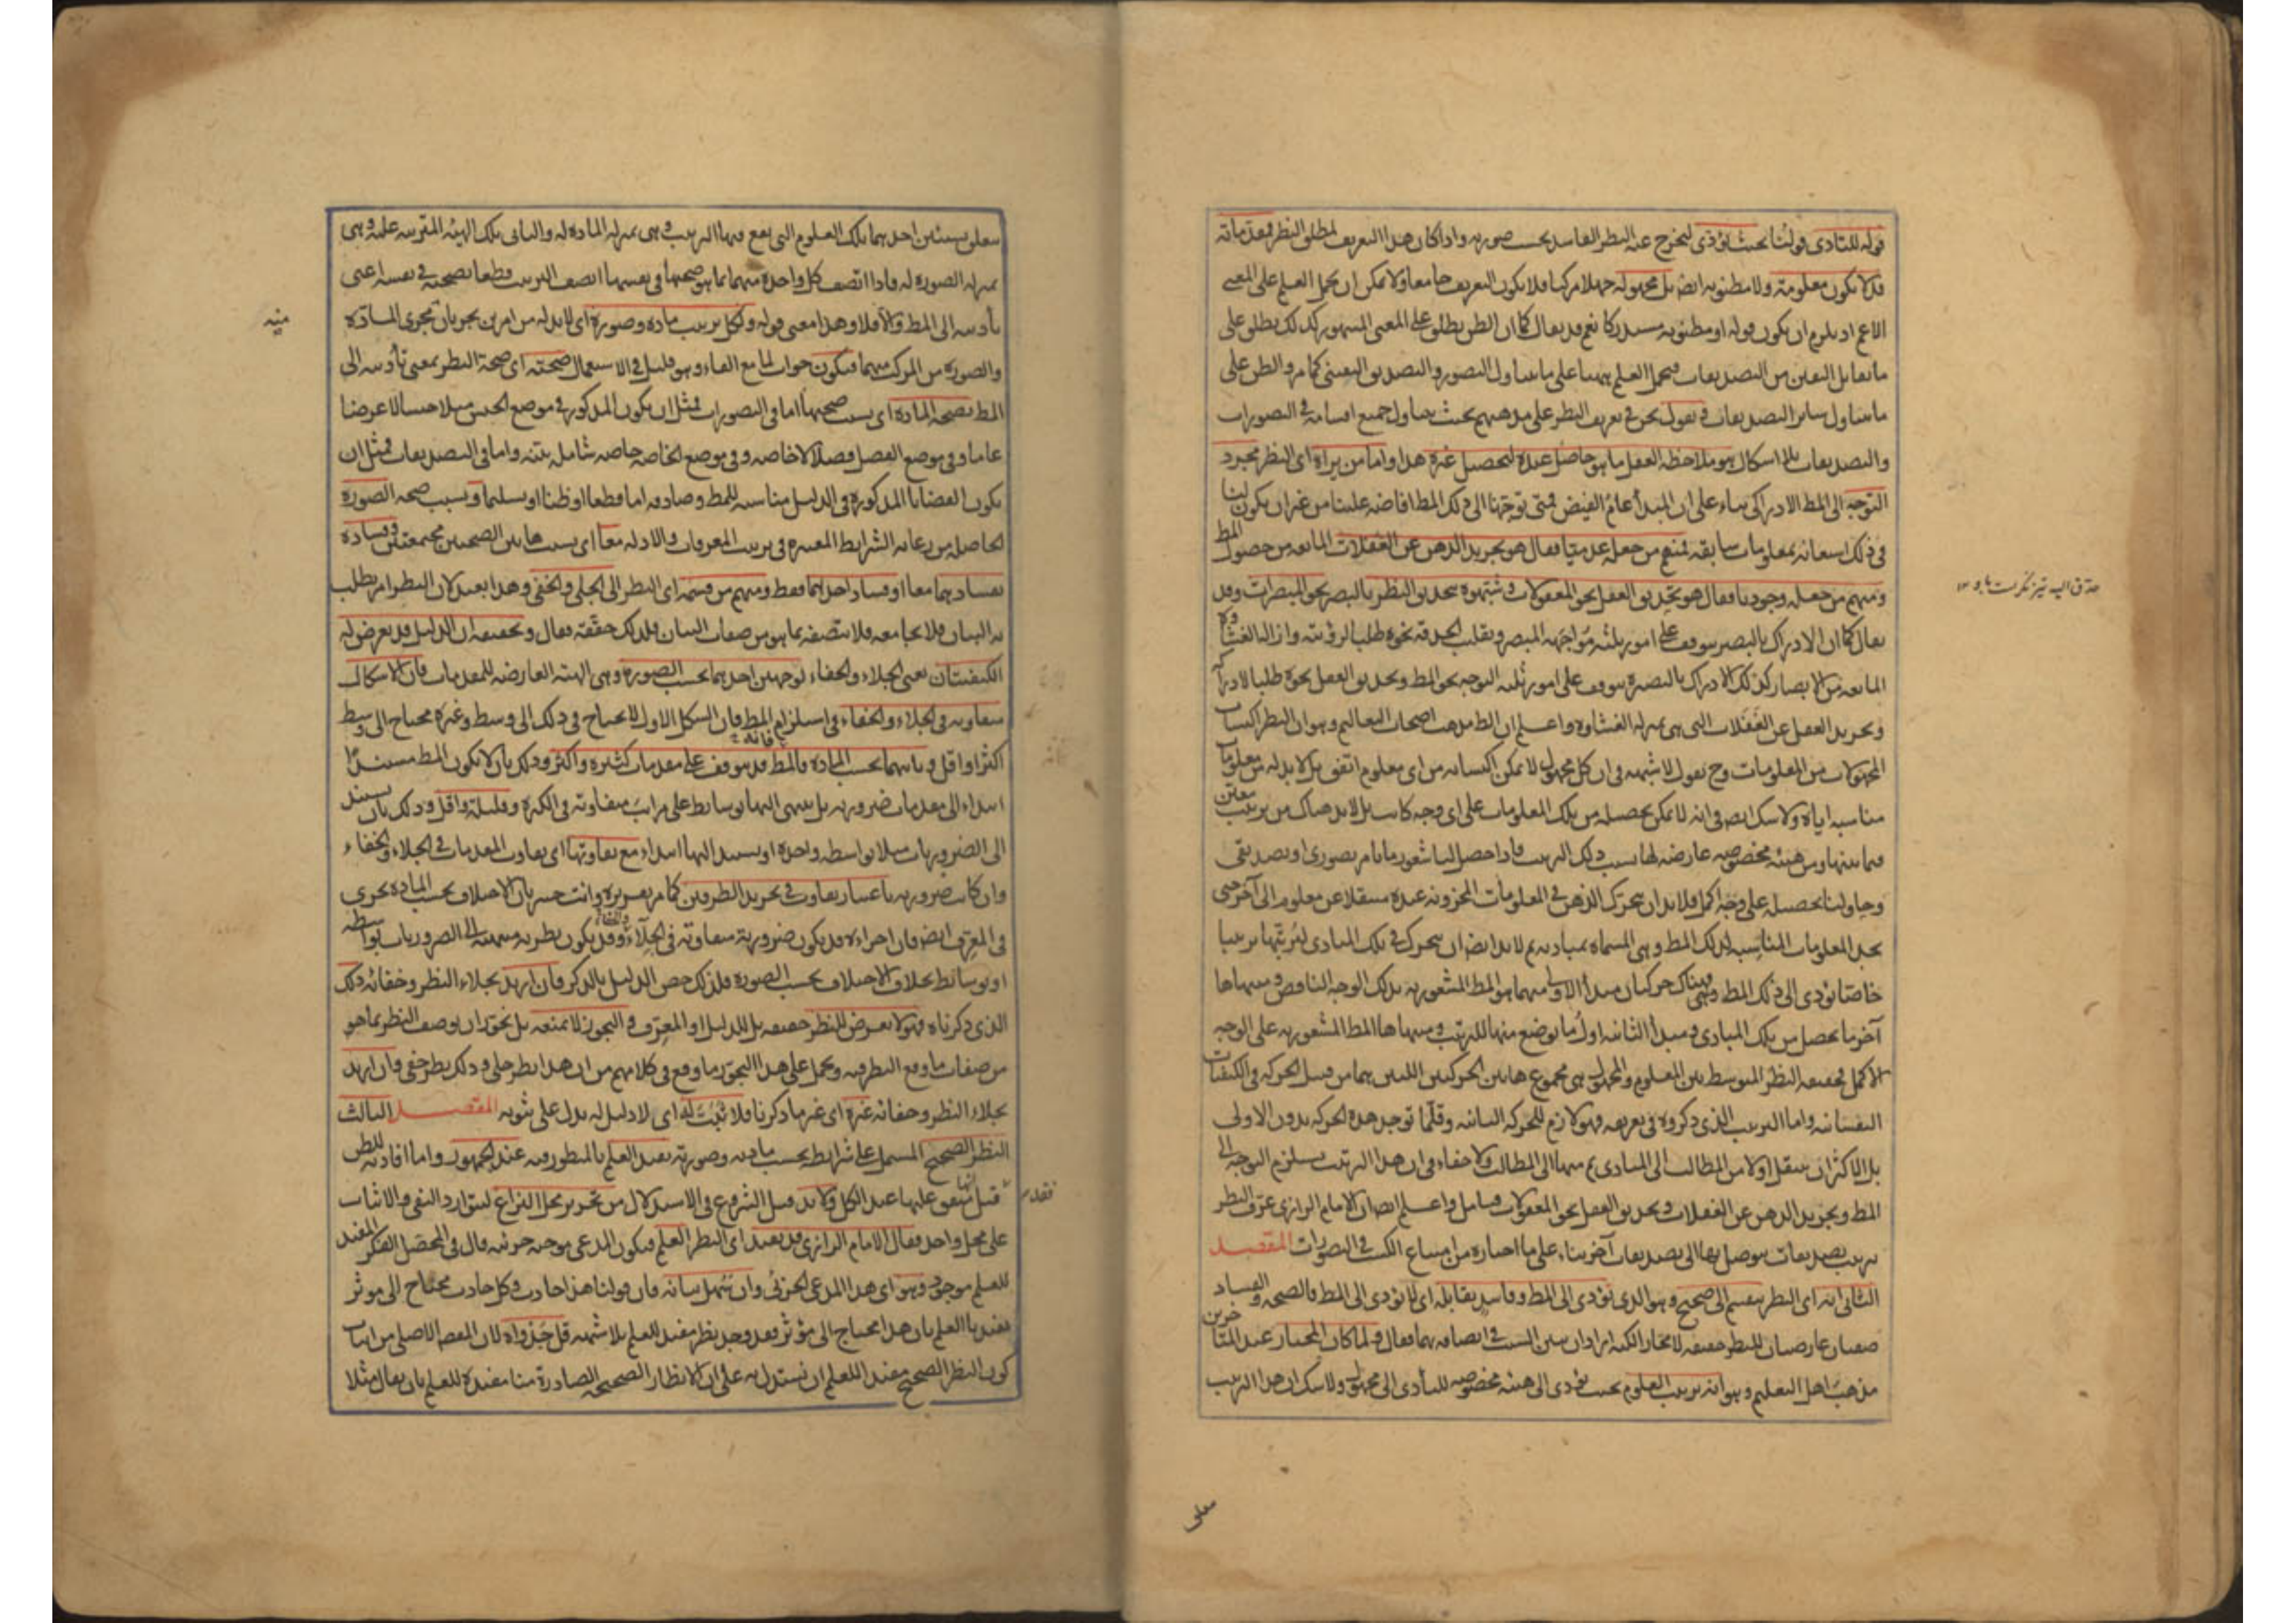 قوله للتادى قولنا بحيث يؤدى ليخرج عنه النظر الفاسد بحسب صورته واذا كان هذا التعريف لمطلق النظر فمقدماته
قد لا تكون معلومة ولا مظنونه ايضا بل مجهوله جهلا مركبا فلا يكون التعريف جامعا ولا يمكن ان يحمل العلم على المعنى
الاعم اذ يلزم ان يكون قوله او مظنونه مستدركا نعم قد يقال كما ان الظن يطلق على المعنى المشهور كذلك يطلق على
ما يقابل اليقين من التصديقات فيحمل العلم ههنا على ما يتناول التصور والتصديق اليقينى كما مر والظن على
ما يتناول سائر التصديقات ونقول نحن فى تعريف النظر على مذهبهم بحيث يتناول جميع اقسامه فى التصورات
والتصديقات بلا اشكال هو ملاحظة العقل ما هو حاصل عنده لتحصيل غيره هذا واما من يراه اى النظر مجرد
التوجه الى المط الادراكى بناء على ان المبدأ عام الفيض فمتى توجهنا الى ذلك المط افاضه علينا من غير ان يكون لنا
فى ذلك استعانه بمعلومات سابقه فمنهم من جعله عدميا فقال هو تجريد الذهن عن الغفلات المانعه من حصول المط
ومنهم من جعله وجوديا فقال هو تحديق العقل نحو المعقولات وشبهوه بتحديق النظر بالبصر نحو المبصرات وقد
يقال كما ان الادراك بالبصر يتوقف على امور ثلثه مواجهه المبصر وتقليب الحدقه نحوه طلبا لرؤيته وازاله الغشاوة
المانعه من الابصار كذلك الادراك بالبصيره يتوقف على امور ثلثه التوجه نحو المط وتحديق العقل نحوه طلبا لادراكه
وتجريد العقل عن الغفلات التى هى بمنزله الغشاوه واعلم ان الظ مذهب اصحاب التعاليم وهو ان النظر اكتساب
المجهولات من المعلومات وح نقول لا شبهه فى ان كل مجهول لا يمكن اكتسابه من اى معلوم اتفق بل لا بد له من معلومات
مناسبه اياه ولا شك ايضا فى انه لا يمكن تحصيله من تلك المعلومات على اى وجه كانت بل لا بد هناك من ترتيب معين
فيما بينها ومن هيئه مخصوصه عارضه لها بسبب ذلك الترتيب فاذا حصل لنا شعور ما بامر تصورى او تصديقى
وحاولنا تحصيله على وجه اكمل فلا بد ان يتحرك الذهن فى المعلومات المخزونه عنده منتقلا عن معلوم الى آخر حتى
يجد المعلومات المناسبه لذلك المط وهى المسماه بمباديه ثم لا بد ايضا ان يتحرك فى تلك المبادى ليرتبها ترتيبا
خاصا يؤدى الى ذلك المط فهناك حركتان مبدأ الاولى منهما هو المط المشعور به بذلك الوجه الناقص ومنتهاها
آخر ما يحصل من تلك المبادى ومبدأ الثانيه اول ما يوضع منها للترتيب ومنتهاها المط المشعور به على الوجه
الاكمل فحقيقه النظر المتوسط بين المعلوم والمجهول هى مجموع هاتين الحركتين اللتين هما من قبيل الحركه فى الكيفيات
النفسانيه واما الترتيب الذى ذكروه فى تعريفه فهو لازم للحركه الثانيه وقلما توجد هذه الحركه بدون الاولى
بل الاكثر ان ينتقل اولا من المطالب الى المبادى ثم منها الى المطالب ولا خفاء فى ان هذا الترتيب يستلزم التوجه الى
المط وتجريد الذهن عن الغفلات وتحديق العقل نحو المعقولات فتامل واعلم ايضا ان الامام الرازى عرف النظر
بترتيب تصديقات يتوصل بها الى تصديقات آخر بناء على ما اختاره من امتناع الكسب فى التصورات المقصد
الثانى انه اى النظر ينقسم الى صحيح وهو الذى يؤدى الى المط وفاسد يقابله اى لا يؤدى الى المط فالصحه والفساد
صفتان عارضتان للنظر حقيقه لا مجازا لكنه اراد ان يبين السبب فى اتصافه بهما فقال ولما كان المختار عند المتأخرين
مذهب اهل التعليم وهو انه ترتيب العلوم بحيث يؤدى الى هيئه مخصوصه للتأدى الى مجهول ولا شك ان هذا الترتيب
حدق اليه تيز نگريست باو
معلق
يتعلق بشيئين احدهما تلك العلوم التى يقع فيها الترتيب وهى بمنزله الماده له والثانى تلك الهيئه المترتبه عليه وهى
بمنزله الصوره له فاذا اتصف كل واحده منهما بما هو صحتها فى نفسها اتصف الترتيب قطعا بصحته فى نفسه اعنى
تأديه الى المط والا فلا وهذا معنى قوله ولكل ترتيب ماده وصورة اى لا بد له من امرين يجريان مجرى المادة
والصوره من المركب منهما فيكون جواب لما مع الفاء وهو قليل فى الاستعمال صحته اى صحة النظر بمعنى تأديه الى
المط بصحه المادة اى بسبب صحتها اما فى التصورات فمثل ان يكون المذكور فى موضع الجنس مثلا جنسا لا عرضا
عاما وفى موضع الفصل فصلا لا خاصه وفى موضع الخاصه خاصه شامله بينه واما فى التصديقات فمثل ان
يكون القضايا المذكوره فى الدليل مناسبه للمط وصادقه اما قطعا او ظنا او تسليما وبسبب صحه الصورة
الحاصله من رعايه الشرايط المعتبره فى ترتيب المعرفات والادله معا اى بسبب هاتين الصحتين مجتمعتين وفساده
بفسادهما معا او فساد احدهما فقط ومنهم من قسمه اى النظر الى الجلى والخفى وهذا بعيد لان النظر امر يطلب
به البيان فلا يجامعه فلا يتصف بما هو من صفات البيان فلذلك حققه فقال وتحقيقه ان الدليل قد يعرض له
الكيفيتان يعنى الجلاء والخفاء لوجهين احدهما بحسب الصورة وهى الهيئه العارضه للمقدمات فان الاشكال
متفاوته فى الجلاء والخفاء فى استلزام المط فان الشكل الاول لا يحتاج فى ذلك الى وسط وغيره محتاج الى وسط
اكثر او اقل وثانيهما بحسب المادة فالمط قد يتوقف على مقدمات كثيره واكثر وذلك بان لا يكون المط مستندا
ابتداء الى مقدمات ضروريه بل ينتهى اليها بوسايط على مراتب متفاوته فى الكثره وقليله واقل وذلك بان يستند
الى الضروريات مثلا بواسطه واحده او يستند اليها ابتداء مع تفاوتها اى تفاوت المقدمات فى الجلاء والخفاء
وان كانت ضروريه باعتبار تفاوت فى تجريد الطرفين كما مر تقريره وانت خبير بان الاختلاف بحسب الماده يجرى
فى المعرف ايضا فان اجزاءه قد يكون ضرورية متفاوته فى الجلاء والخفاء وقد يكون نظريه منتهيه الى الضروريات بواسطه
او بوسائط بخلاف الاختلاف بحسب الصوره فلذلك خص الدليل بالذكر فان اريد بجلاء النظر وخفائه ذلك
الذى ذكرناه فهو لا يعرض للنظر حقيقه بل للدليل او المعرف والتجوز لا نمنعه بل يجوز ان يوصف النظر بما هو
من صفات ما وقع النظر فيه ويحمل على هذا التجوز ما وقع فى كلامهم من ان هذا نظر جلى وذلك نظر خفى وان اريد
بجلاء النظر وخفائه غيره اى غير ما ذكرنا فلا ثبت له اى لا دليل له يدل على ثبوته المقصد الثالث
النظر الصحيح المشتمل على شرائطه بحسب مادته وصورته يفيد العلم بالمنظور فيه عند الجمهور واما افادته للظن
فقيل متفق عليها عند الكل ولا بد قبل الشروع فى الاستدلال من تحرير محل النزاع ليتوارد النفى والاثبات
على محل واحد فقال الامام الرازى قد يفيد اى النظر العلم فيكون المدعى موجبه جزئيه قال فى المحصل الفكر المفيد
للعلم موجود وهو اى هذا المدعى الجزئى وان سهل بيانه فان قولنا هذا حادث وكل حادث محتاج الى موثر
يفيدنا العلم بان هذا محتاج الى مؤثر فقد وجد نظر مفيد للعلم بلا شبهه قل جدواه لان المقصد الاصلى من اثبات
كون النظر الصحيح مفيدا للعلم ان نستدل به على ان الانظار الصحيحه الصادرة منا مفيدة للعلم بان يقال مثلا